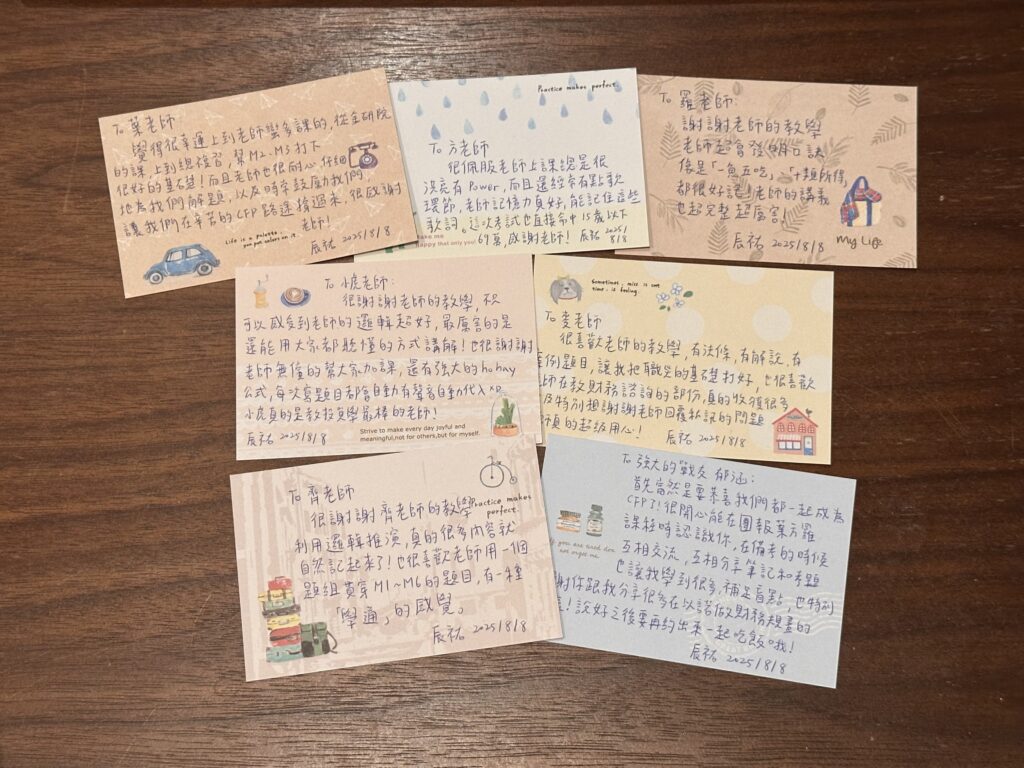 To 葉老師
覺得很幸運上到老師蠻多課的,從金研院
的課,上到總複習,幫M2、M3打下
很好的基礎!而且老師很耐心仔細
地為我們解題,以及時常鼓勵我們
讓我們在辛苦的CFP路途撐過來,很感謝
老師!
Life is a palette,
you put colors on it.
辰祐 2025/8/8
Practice makes perfect.
To 方老師
很佩服老師上課總是很
漂亮有Power,而且還經常有點歌
環節,老師記憶力真好,能記住這些
歌詞。這次考試也直接命中15歲以下
69萬,感謝老師!
辰祐 2025/
8/8
happy that only you!
To 羅老師:
謝謝老師的教學
老師超會發明口訣
像是「一魚五吃」、「十類所得」
都很好記!老師的講義
也超完整超厲害!
辰祐 2025/8/8
My Life
To 小虎老師:
很謝謝老師的教學,
可以感受到老師的邏輯超好,最厲害的是
還能用大家都聽懂的方式講解!也很謝謝
老師無償的幫大家加課,還有強大的
公式,每次寫題目都會自動有聲音自動代入XD
小虎真的是教投資學最棒的老師!
辰祐 2025/8/8
Strive to make every day joyful and
meaningful,not for others,but for myself.
Sometimes, miss is not
time, is feeling.
To 麥老師
很喜歡老師的教學,有法條,有解說,有
例題目,讓我把職災的基礎打好,也很喜歡
師在教財務諮詢的部份,真的收穫很多
及特別想謝謝老師回覆私訊的問題
真的超級用心!
辰祐 2025/8/8
Practice makes
perfect.
To 齊老師
很謝謝齊老師的教學
利用邏輯推演,真的很多內容就
自然記起來了!也很喜歡老師用一個
題組貫穿M1~M6的題目,有一種
「學通」的感覺。
辰祐 2025/8/8
To 強大的戰友 郁涵:
首先當然是要恭喜我們都一起成為
CFP了!很開心能在團報葉方羅
課程時認識你,在備考的時候
互相交流,互相分享筆記和考題
也讓我學到很多,補足盲點,也特別
謝你跟我分享很多在以諾做財務規畫的
!說好之後要再約出來一起吃飯哦!
辰祐 2025/8/8
If you are tired don
not forget me